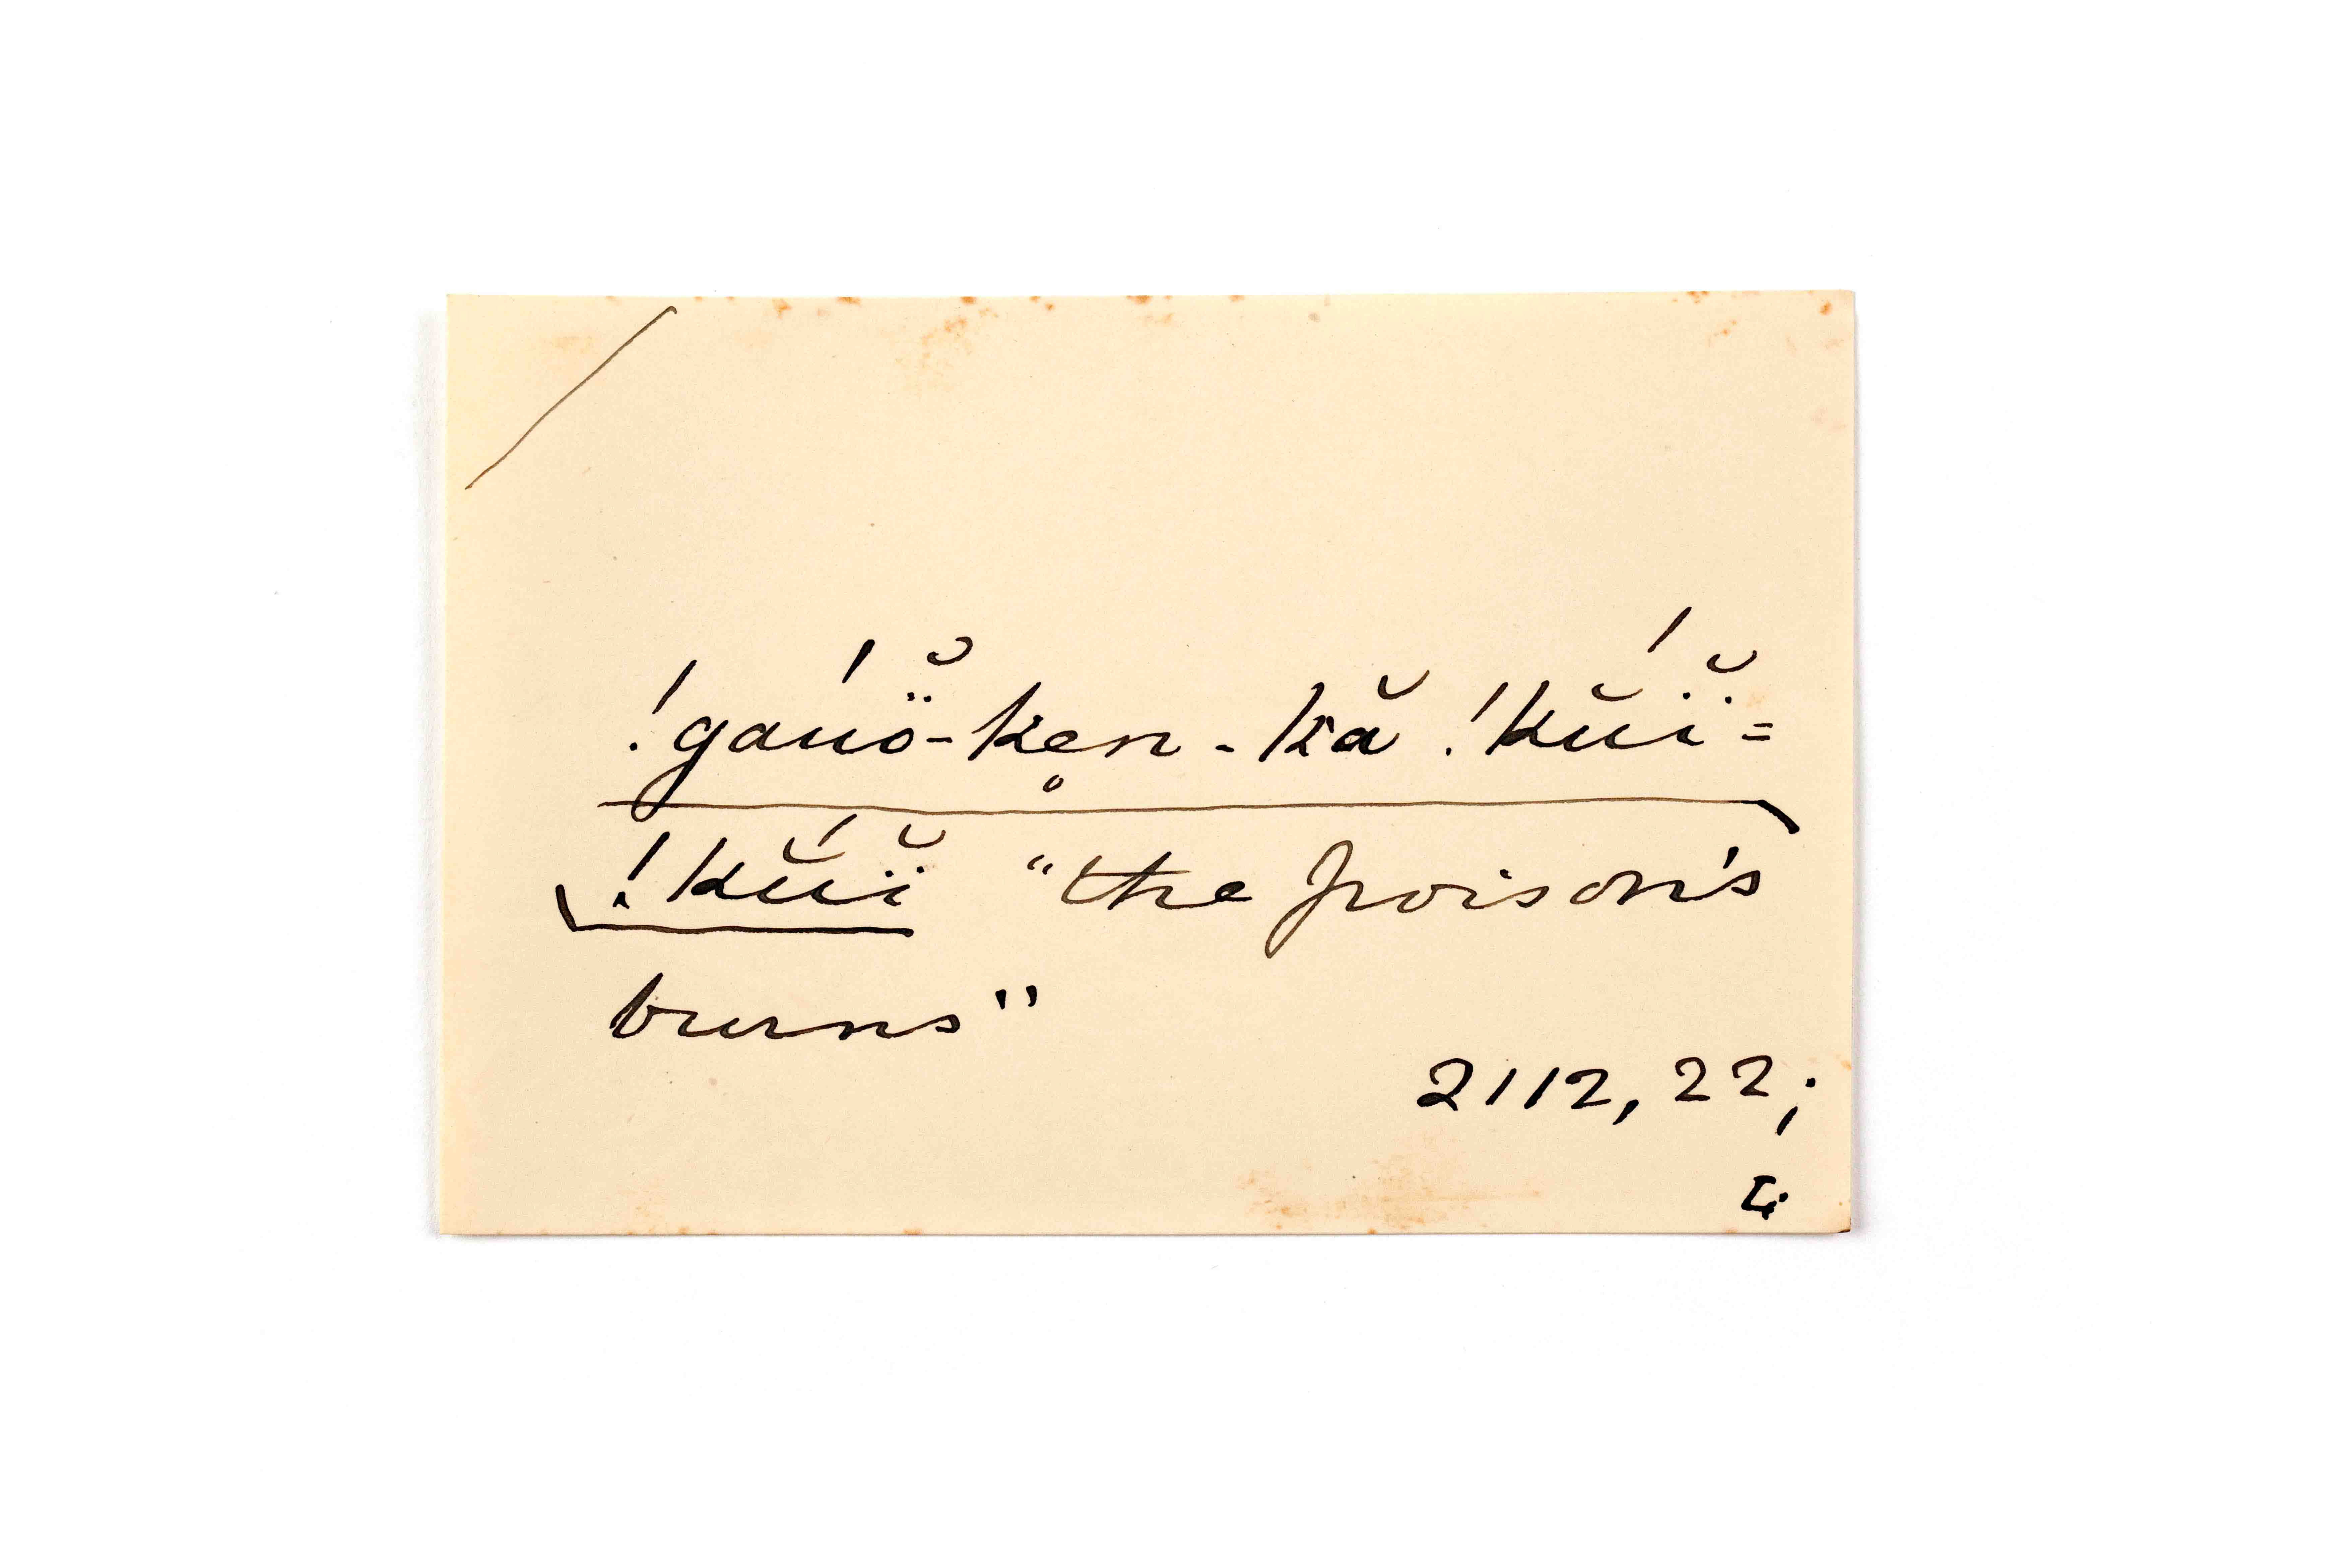 !gáuö̆-ken̥-kă !kŭ́ï̆=
!kŭ́ï̆ "the poison's
burns"
2112, 22;
L.